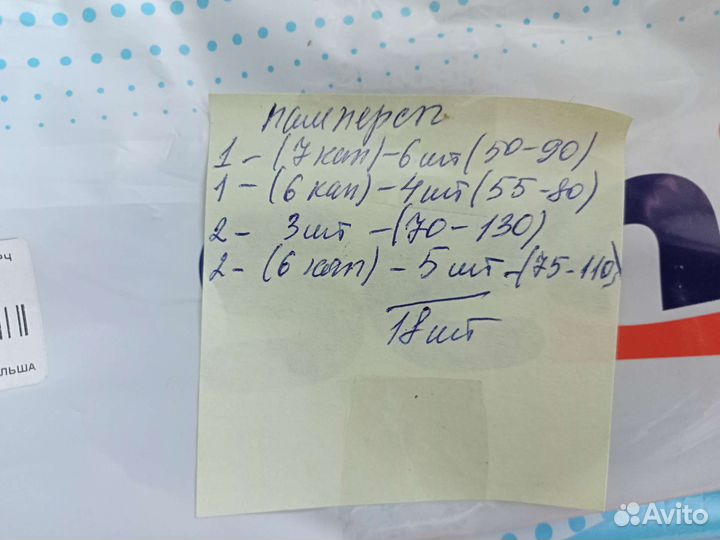 памперсы
1 - (7 кап) - 6 шт (50-90)
1 - (6 кап) - 4 шт (55-80)
2 - 3 шт - (70 - 130)
2 - (6 кап) - 5 шт - (75-110)
18 шт
РЧ
ЛЬША
Avito